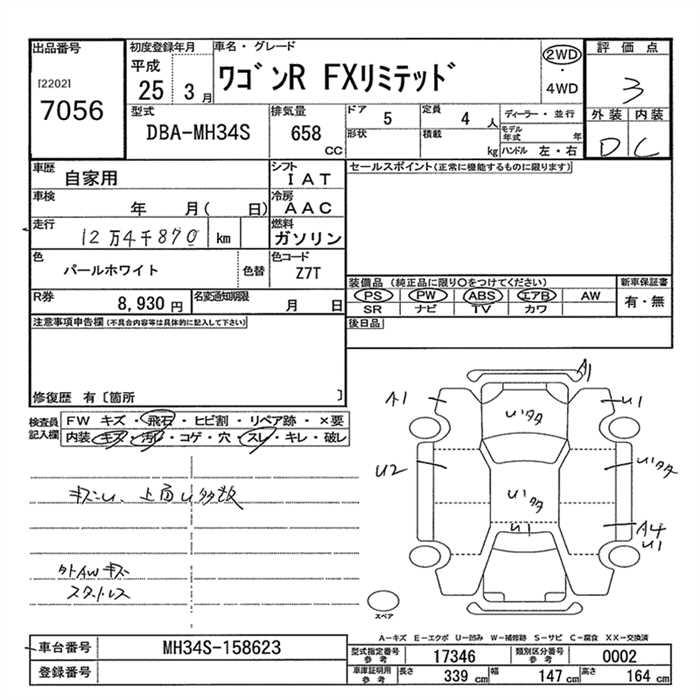 出品番号
[2202]
7056
初度登録年月
平成
25 3月
車名・グレード
ワゴンR FXリミテッド
2WD
・
4WD
評価点
3
型式
DBA-MH34S
排気量
658
cc
ドア 5
定員 4 人
形状
積載 kg
ディーラー・並行
モデル年式 年
ハンドル 左・右
外装 内装
D C
車歴
自家用
シフト
IAT
車検
年 月( 日)
冷房
AAC
走行
12万4千870 km
燃料
ガソリン
色
パールホワイト
色替
色コード
Z7T
R券
8,930 円
名変通知期限
月 日
セールスポイント(正常に機能するものに限ります)
装備品 (純正品に限り○をつけてください)
新車保証書
PS PW ABS エアB AW
有・無
SR ナビ TV カワ
後日品
注意事項申告欄(不具合内容等は具体的に記入して下さい)
修復歴 有〔箇所 〕
検査員
記入欄
FW キズ・飛石・ヒビ割・リペア跡・×要
内装・キズ・汚れ・コゲ・穴・スレ・キレ・破レ
キズU、上面U多数
外AWキズ
スタットレス
A1
A1
U1
Uいタタ
U2
Uいタタ
Uいタタ
U1
A4
U1
スペア
A-キズ E-エクボ U-凹み W-補修跡 S-サビ C-腐食 XX-交換済
車台番号
MH34S-158623
登録番号
型式指定番号
参考
17346
類別区分番号
参考
0002
車庫証明用
参考
長さ 339 cm
幅 147 cm
高さ 164 cm